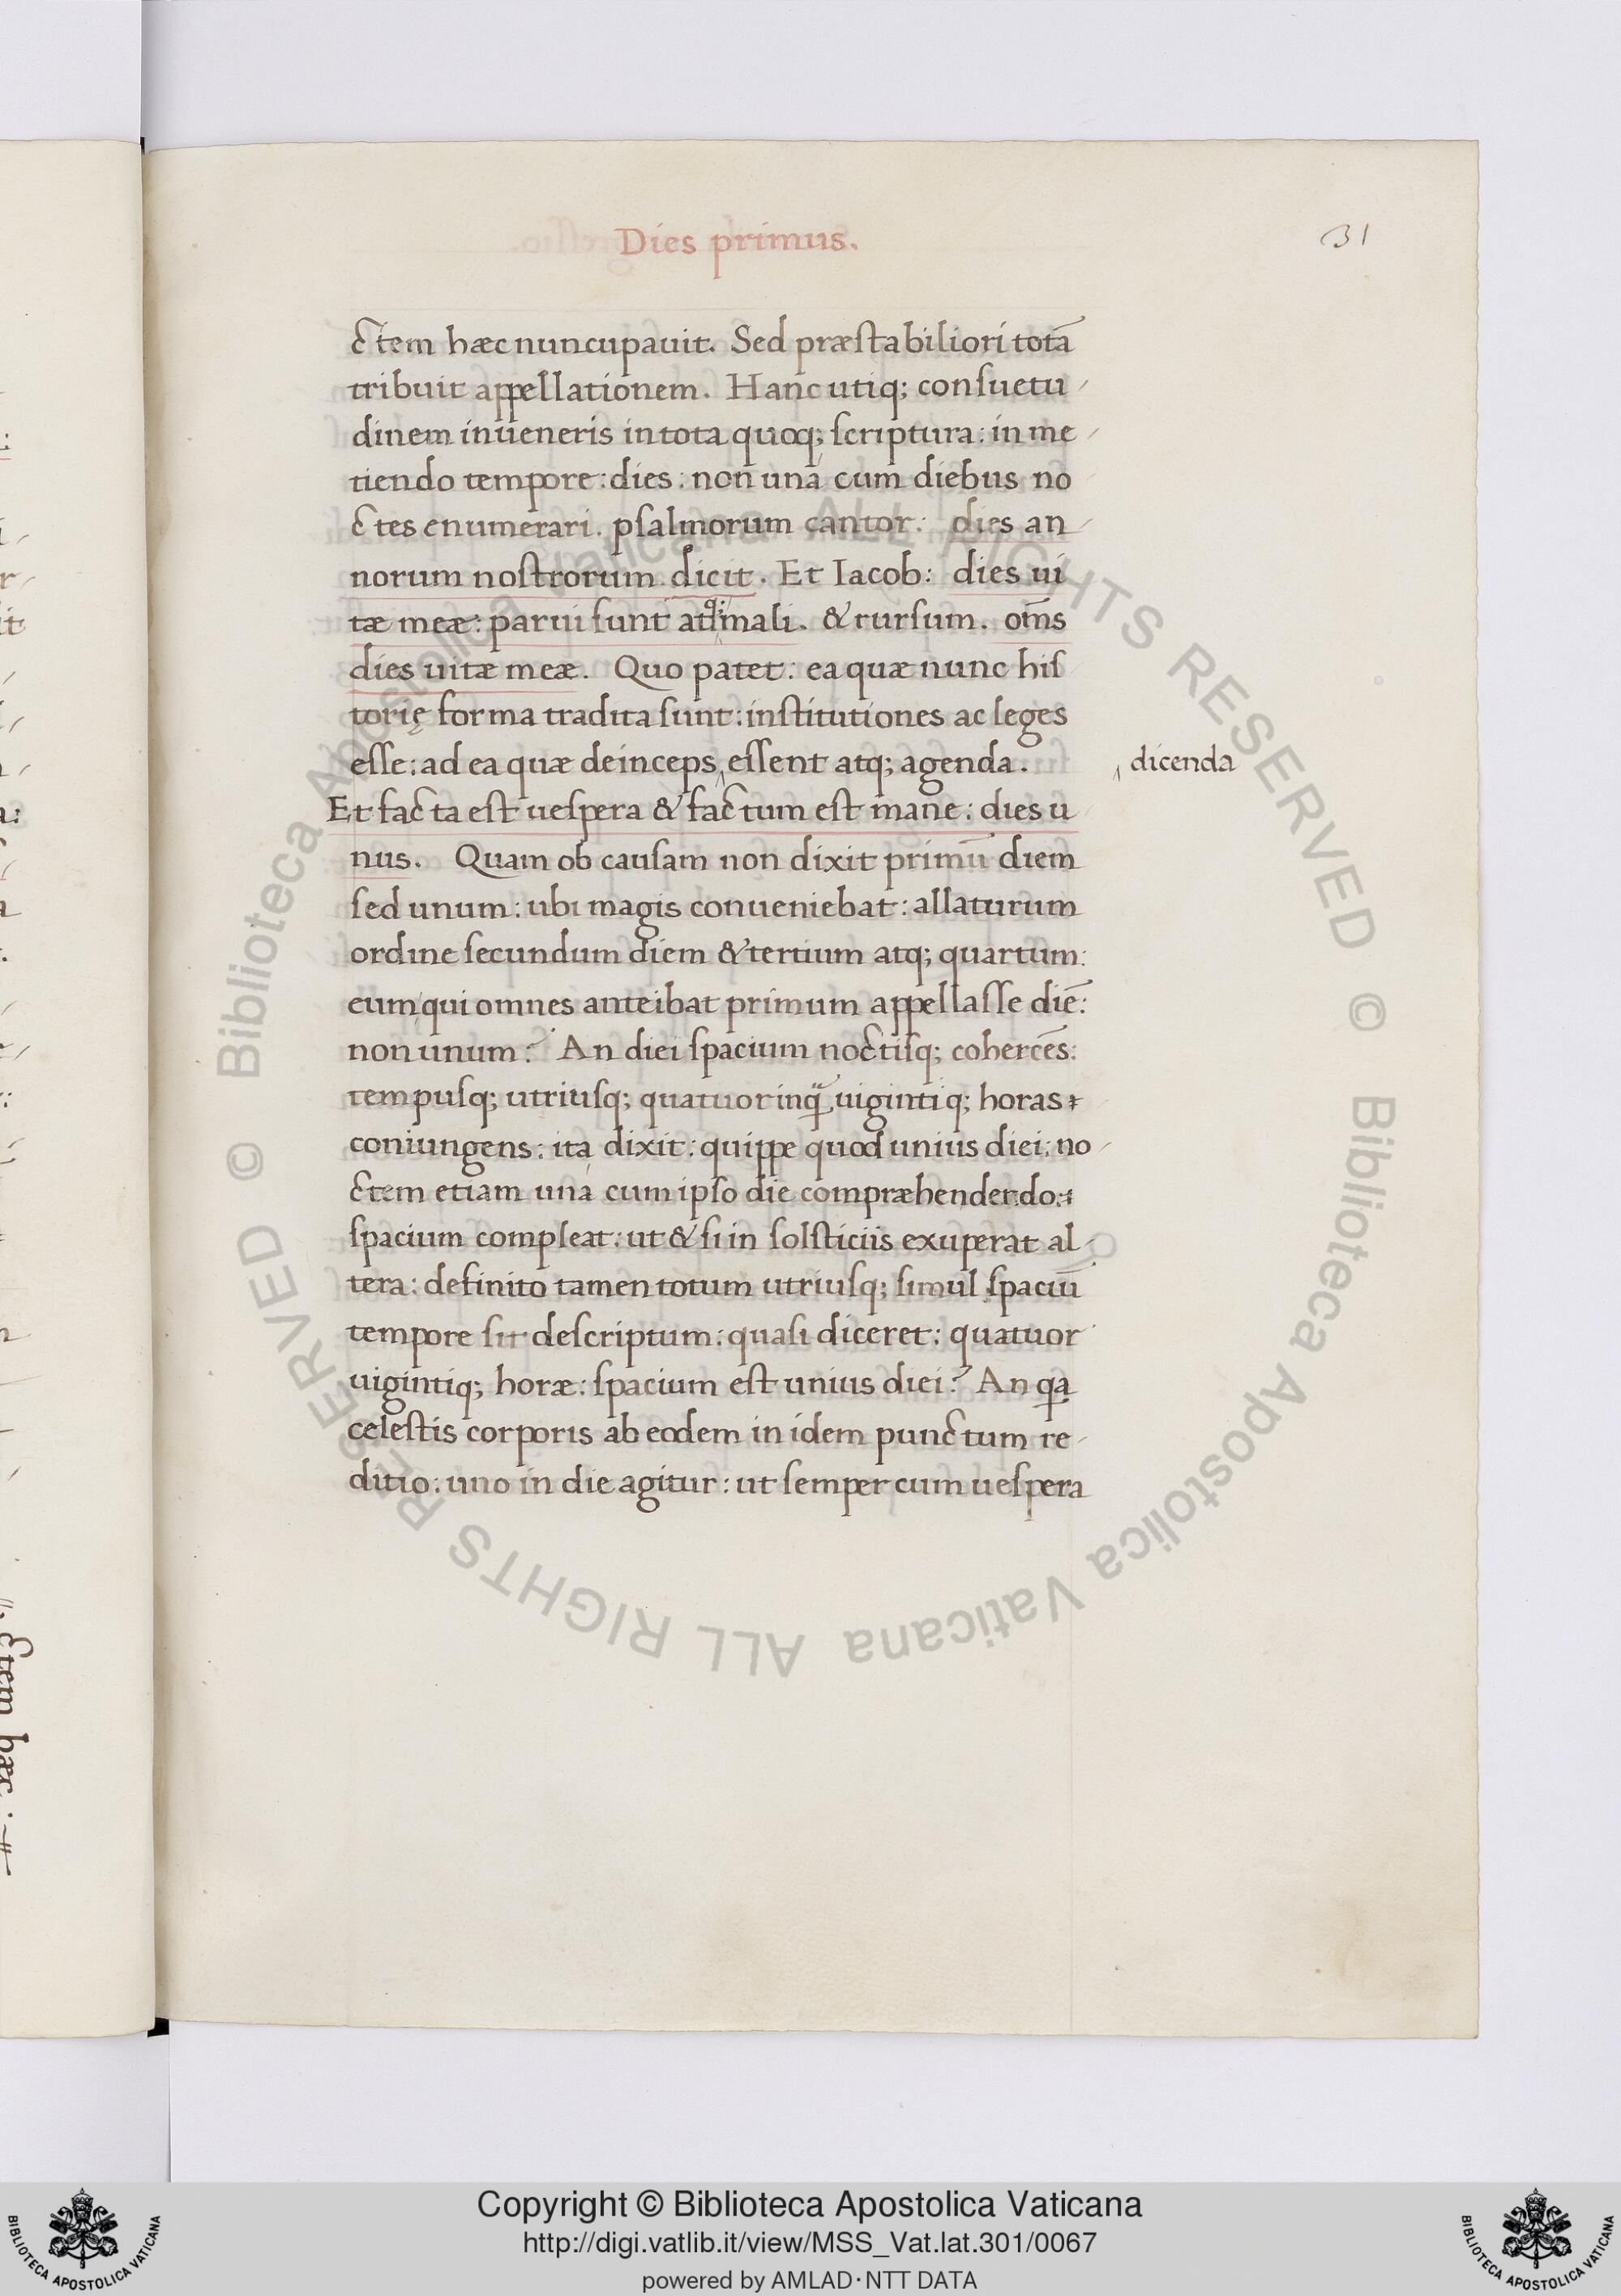 Dies primus.
31
ctem hæc nuncupauit. Sed præstabiliori totā
tribuit appellationem. Hanc utiq; consuetu
dinem inueneris in tota quoq; scriptura: in me
tiendo tempore: dies: non una cum diebus no
ctes enumerari. psalmorum cantor: dies an
norum nostrorum dicit. Et Iacob: dies ui
tæ meæ: parui sunt atq; mali. & rursum. om̄s
dies uitæ meæ. Quo patet: ea quæ nunc his
torię forma tradita sunt: institutiones ac leges
esse: ad ea quæ deinceps essent atq; agenda.
dicenda
Et facta est uespera & factum est mane: dies u
nus. Quam ob causam non dixit primū diem
sed unum: ubi magis conueniebat: allaturum
ordine secundum diem & tertium atq; quartum:
eum qui omnes anteibat primum appellasse diē:
non unum? An diei spacium noctisq; cohercēs:
tempusq; utriusq; quatuor inquā uigintiq; horas
coniungens: ita dixit: quippe quod unius diei: no
ctem etiam una cum ipso die compræhendendo:
spacium compleat: ut & si in solsticiis exuperat al
tera: definito tamen totum utriusq; simul spaciū
tempore sit descriptum: quasi diceret: quatuor
uigintiq; horæ: spacium est unius diei? An qa
celestis corporis ab eodem in idem punctum re
ditio: uno in die agitur: ut semper cum uespera
ctem hæc:
© Biblioteca Apostolica Vaticana ALL RIGHTS RESERVED
© Biblioteca Apostolica Vaticana ALL RIGHTS RESERVED
Copyright © Biblioteca Apostolica Vaticana
http://digi.vatlib.it/view/MSS_Vat.lat.301/0067
powered by AMLAD·NTT DATA
BIBLIOTECA APOSTOLICA VATICANA
BIBLIOTECA APOSTOLICA VATICANA